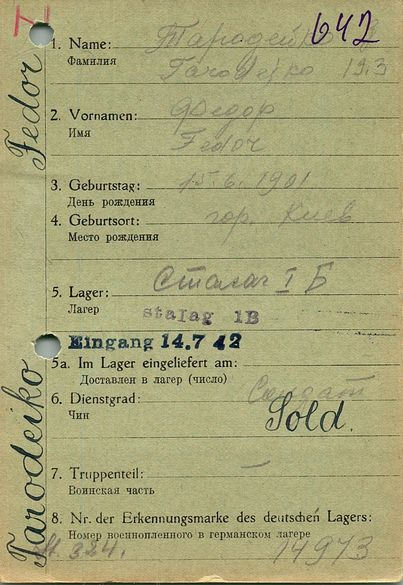 642
1. Name: Тародейко
Фамилия Tarodejko 19.3
2. Vornamen: Федор
Имя Fedor
3. Geburtstag: 15.6.1901
День рождения
4. Geburtsort: гор. Киев
Место рождения
5. Lager: Сталаг I Б
Лагер stalag 1B
Eingang 14.7 42
5a. Im Lager eingeliefert am:
Доставлен в лагер (число)
6. Dienstgrad: Солдат
Чин Sold.
7. Truppenteil: —
Воинская часть
8. Nr. der Erkennungsmarke des deutschen Lagers:
Номер военнопленного в германском лагере
324. 14973
Tarodeiko Fedor